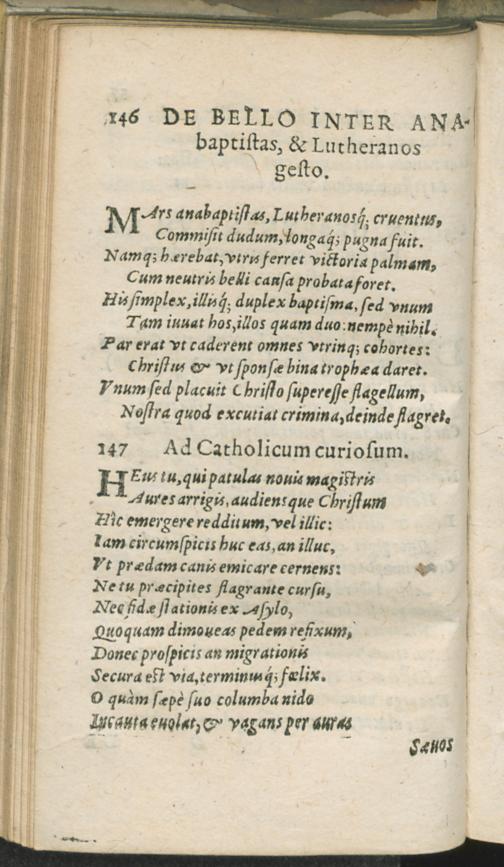 146 DE BELLO INTER ANA-
baptistas, & Lutheranos
gesto.
MArs anabaptistas, Lutheranosq́; cruentus,
Commisit dudum, longaq́; pugna fuit.
Namq; hærebat, vtris ferret victoria palmam,
Cum neutris belli causa probata foret.
His simplex, illisq́; duplex baptisma, sed vnum
Tam iuuat hos, illos quam duo: nempè nihil.
Par erat vt caderent omnes vtrinq; cohortes:
Christus & vt sponsæ bina trophæa daret.
Vnum sed placuit Christo superesse flagellum,
Nostra quod excutiat crimina, deinde flagret.
147 Ad Catholicum curiosum.
HEus tu, qui patulas nouis magistris
Aures arrigis, audiensque Christum
Hîc emergere redditum, vel illic:
Iam circumspicis huc eas, an illuc,
Vt prædam canis emicare cernens:
Ne tu præcipites flagrante cursu,
Nec fidæ stationis ex Asylo,
Quoquam dimoueas pedem refixum,
Donec prospicis an migrationis
Secura est via, terminusq́; fœlix.
O quàm sæpè suo columba nido
Incauta euolat, & vagans per auras
Sæuos